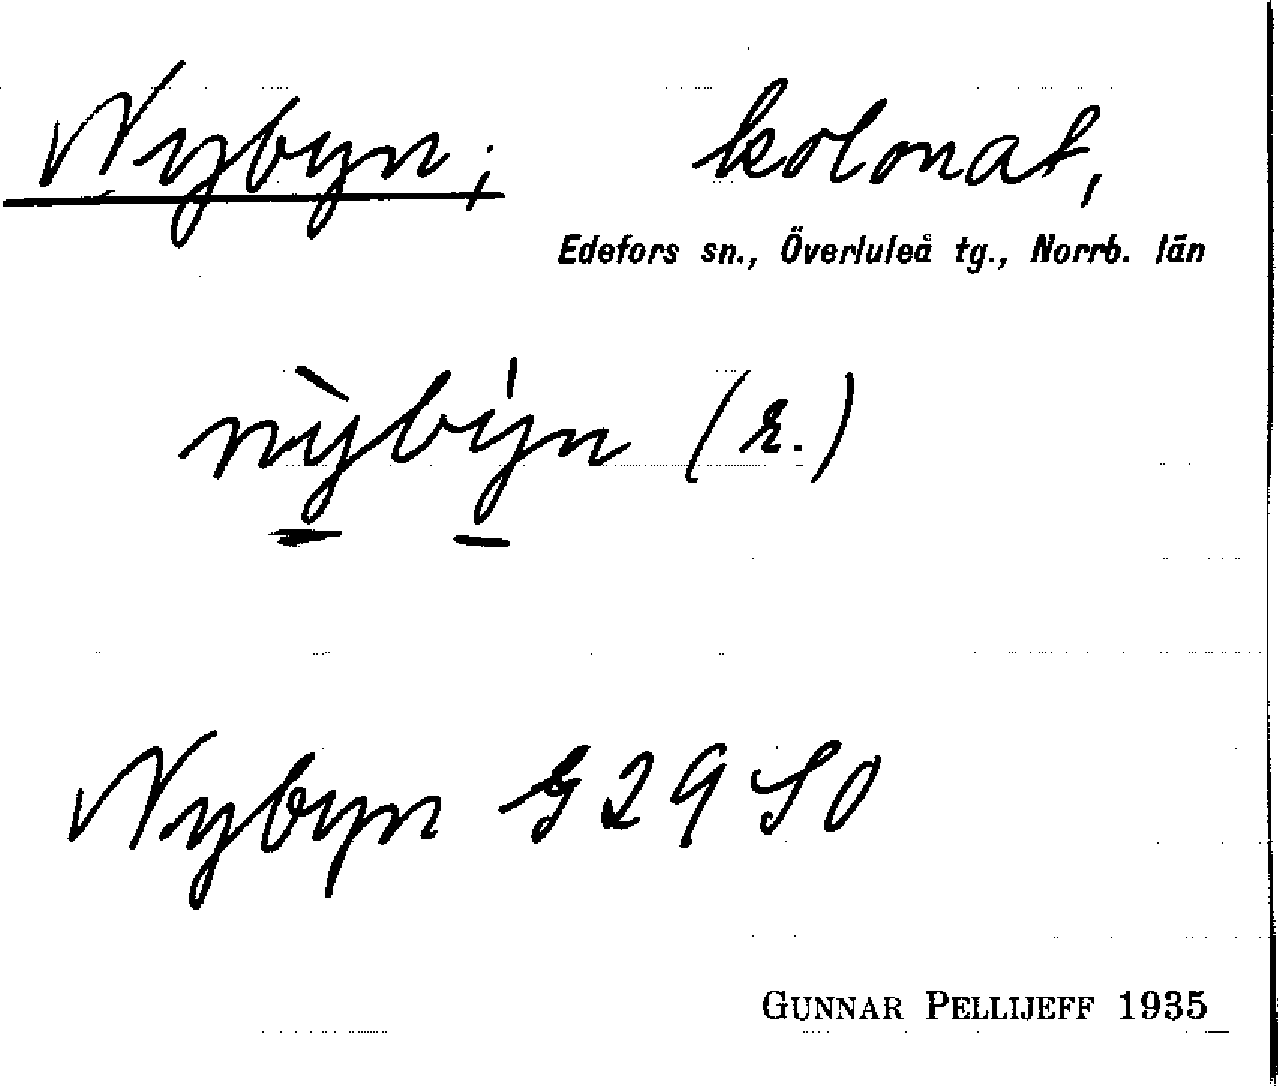 Nybyn; kolonat,
Edefors sn., Överluleå tg., Norrb. län
nỳby̍n (r.)
Nybyn G 29 SO
GUNNAR PELLIJEFF 1935